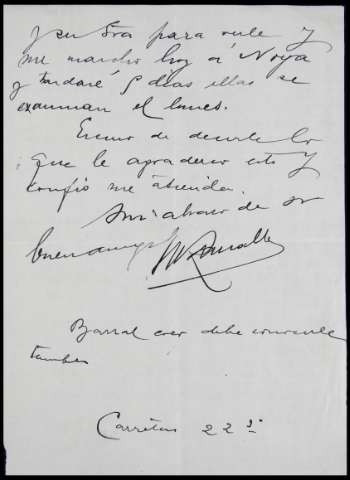 y en Sra para verle y
me marcho hoy á Noya
y tardaré 5 dias ellas se
examinan el lunes.
Excuso de decirle lo
que le agradezco esto y
confio me atienda.
Un abrazo de su
buen amigo
Barral creo debe conocerle
tambien
Carretas 22 3º